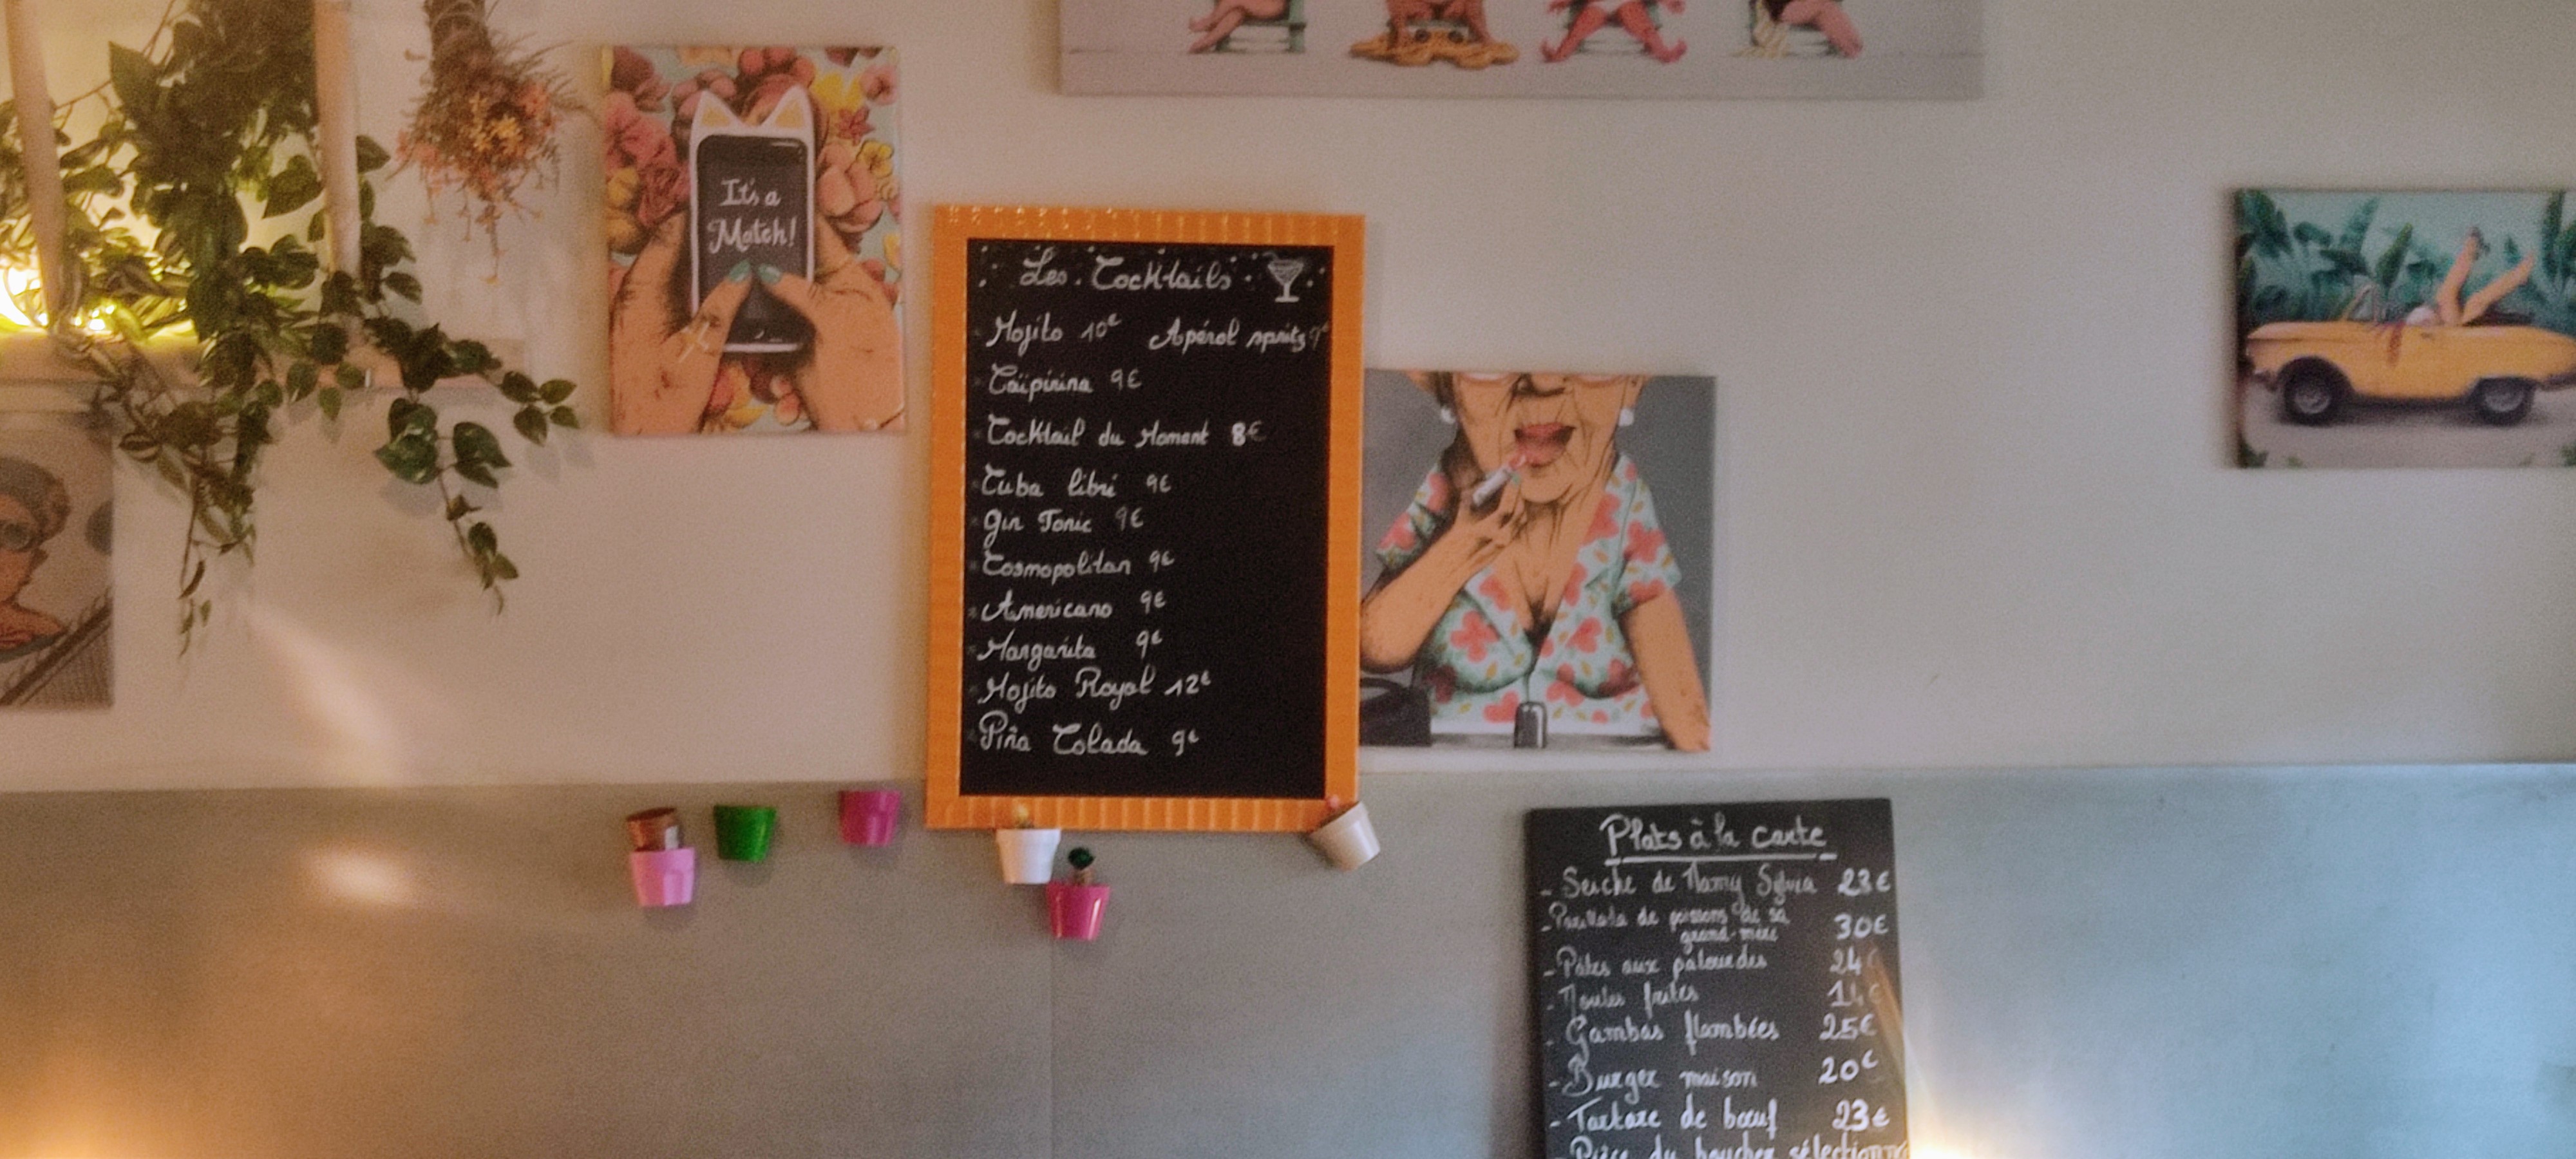 It's a
Match!
Les Cocktails
Mojito 10€ Apérol spritz 9€
Caïpirina 9€
Cocktail du Moment 8€
Cuba libré 9€
Gin Tonic 9€
Cosmopolitan 9€
Americano 9€
Margarita 9€
Mojito Royal 12€
Piña Colada 9€
Plats à la carte
- Seiche de Mamy Sylvia 23€
- Parillada de poissons de sa
grand-mère 30€
- Pâtes aux palourdes 24€
- Moules frites
- Gambas flambées 25€
- Burger maison 20€
- Tartare de bœuf 23€
- Pièce du boucher sélectionné